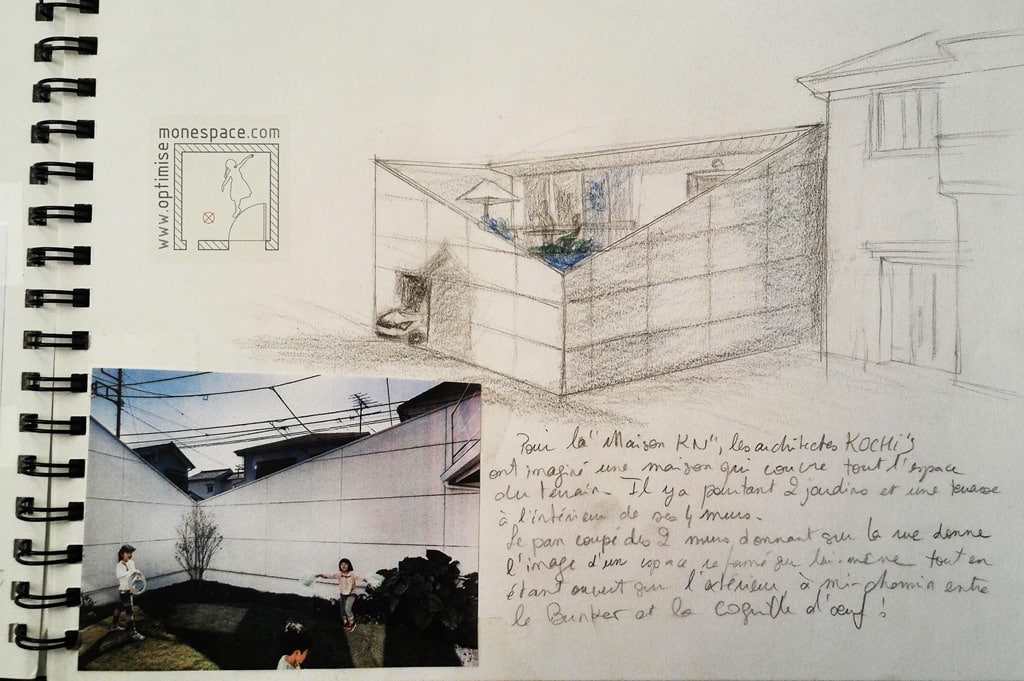 monespace.com
www.optimise
Pour la "Maison KN", les architectes KOCHI'S
ont imaginé une maison qui couvre tout l'espace
du terrain. Il y a pourtant 2 jardins et une terrasse
à l'intérieur de ses 4 murs.
Le pan coupé des 2 murs donnant sur la rue donne
l'image d'un espace refermé sur lui-même tout en
étant ouvert sur l'extérieur, à mi-chemin entre
le Bunker et la coquille d'œuf !